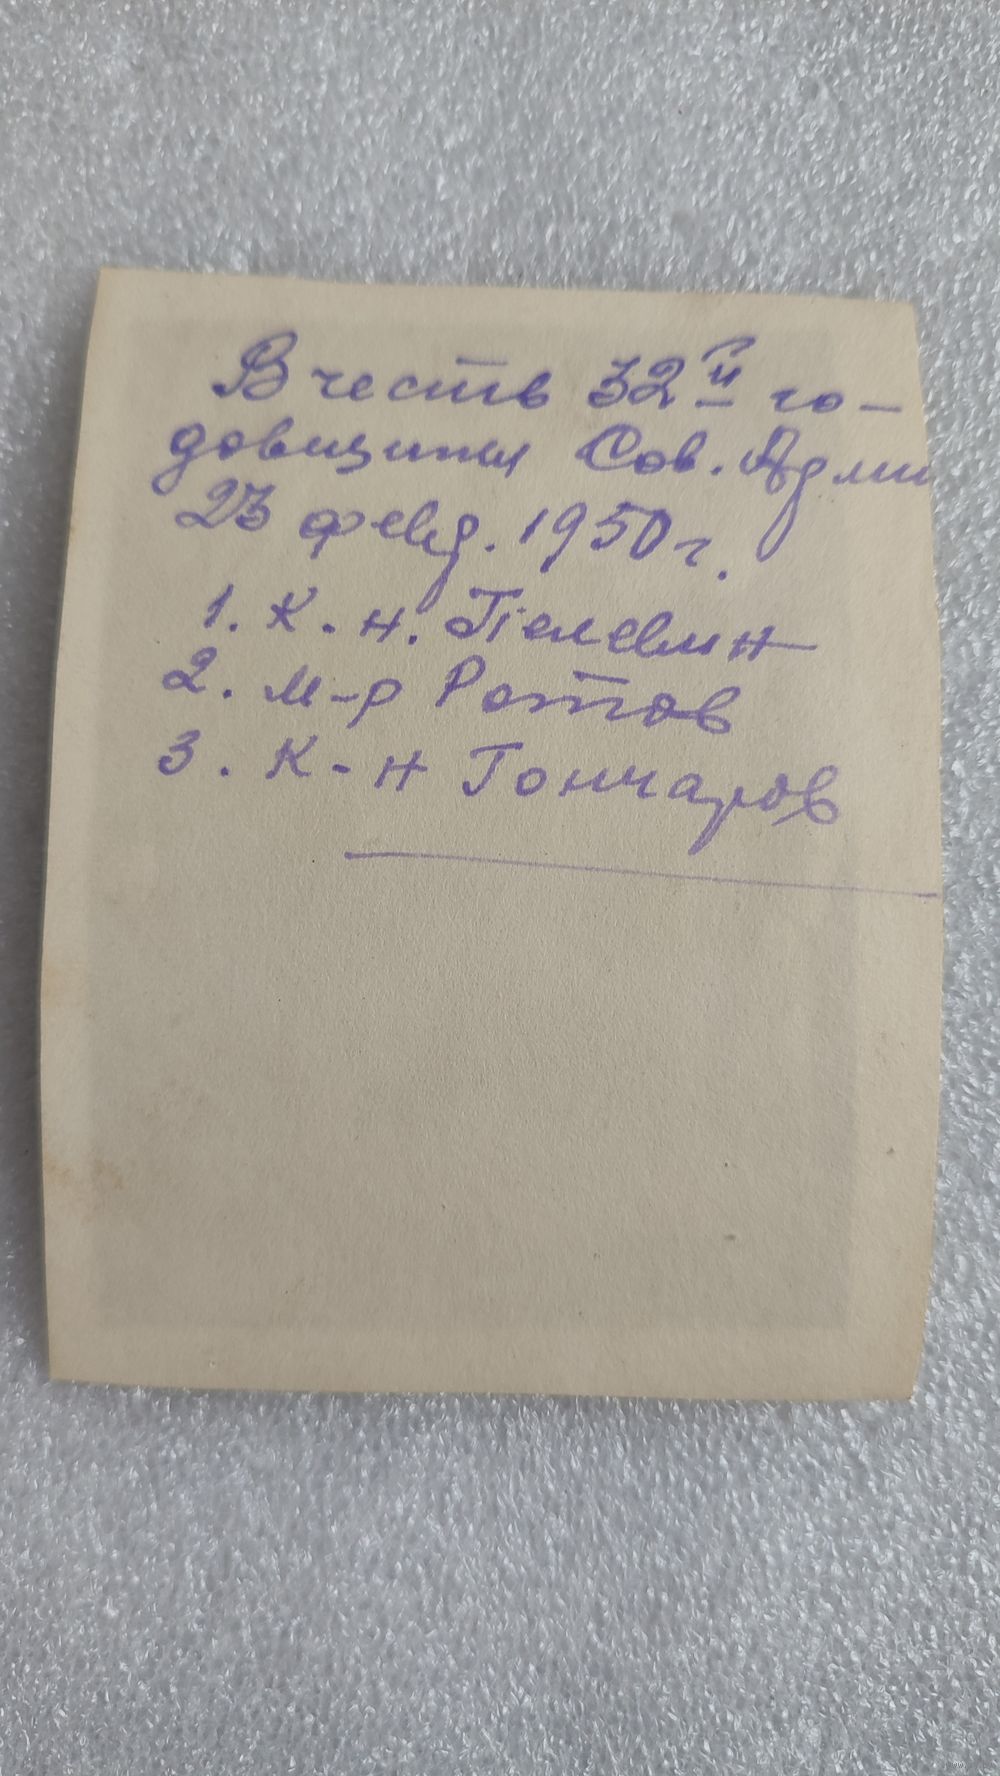 В честь 32й го-
довщины Сов. Арми
23 февр. 1950 г.
1. К-н. Пелевин
2. м-р Ротов
3. К-н Гончаров